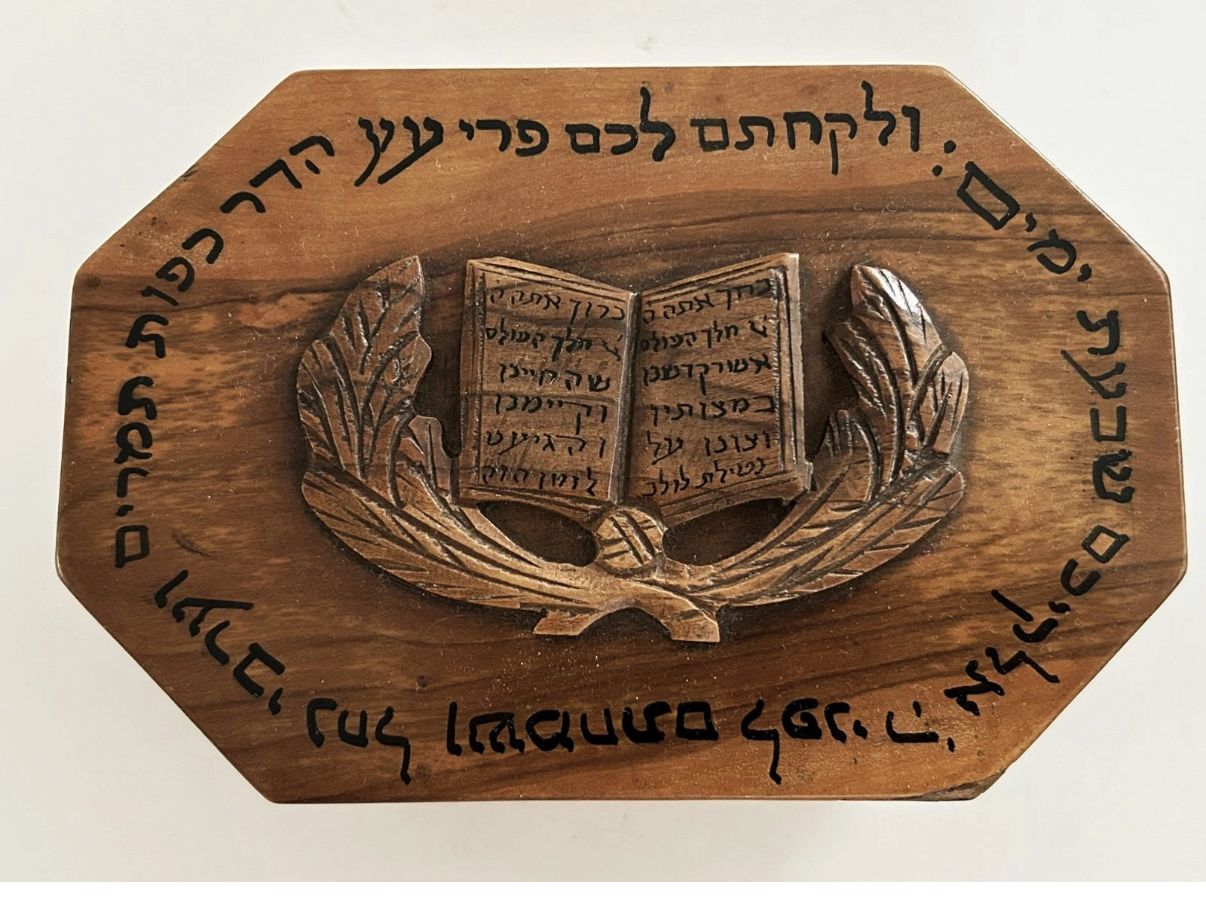 ולקחתם לכם פרי עץ הדר כפות תמרים וערבי נחל ושמחתם לפני ה' אלקיכם שבעת ימים:
ברוך אתה ה'
א' מלך העולם
אשר קדשנו
במצותיו
וצונו על
נטילת לולב
ברוך אתה ה'
א' מלך העולם
שהחיינו
וקיימנו
והגיענו
לזמן הזה